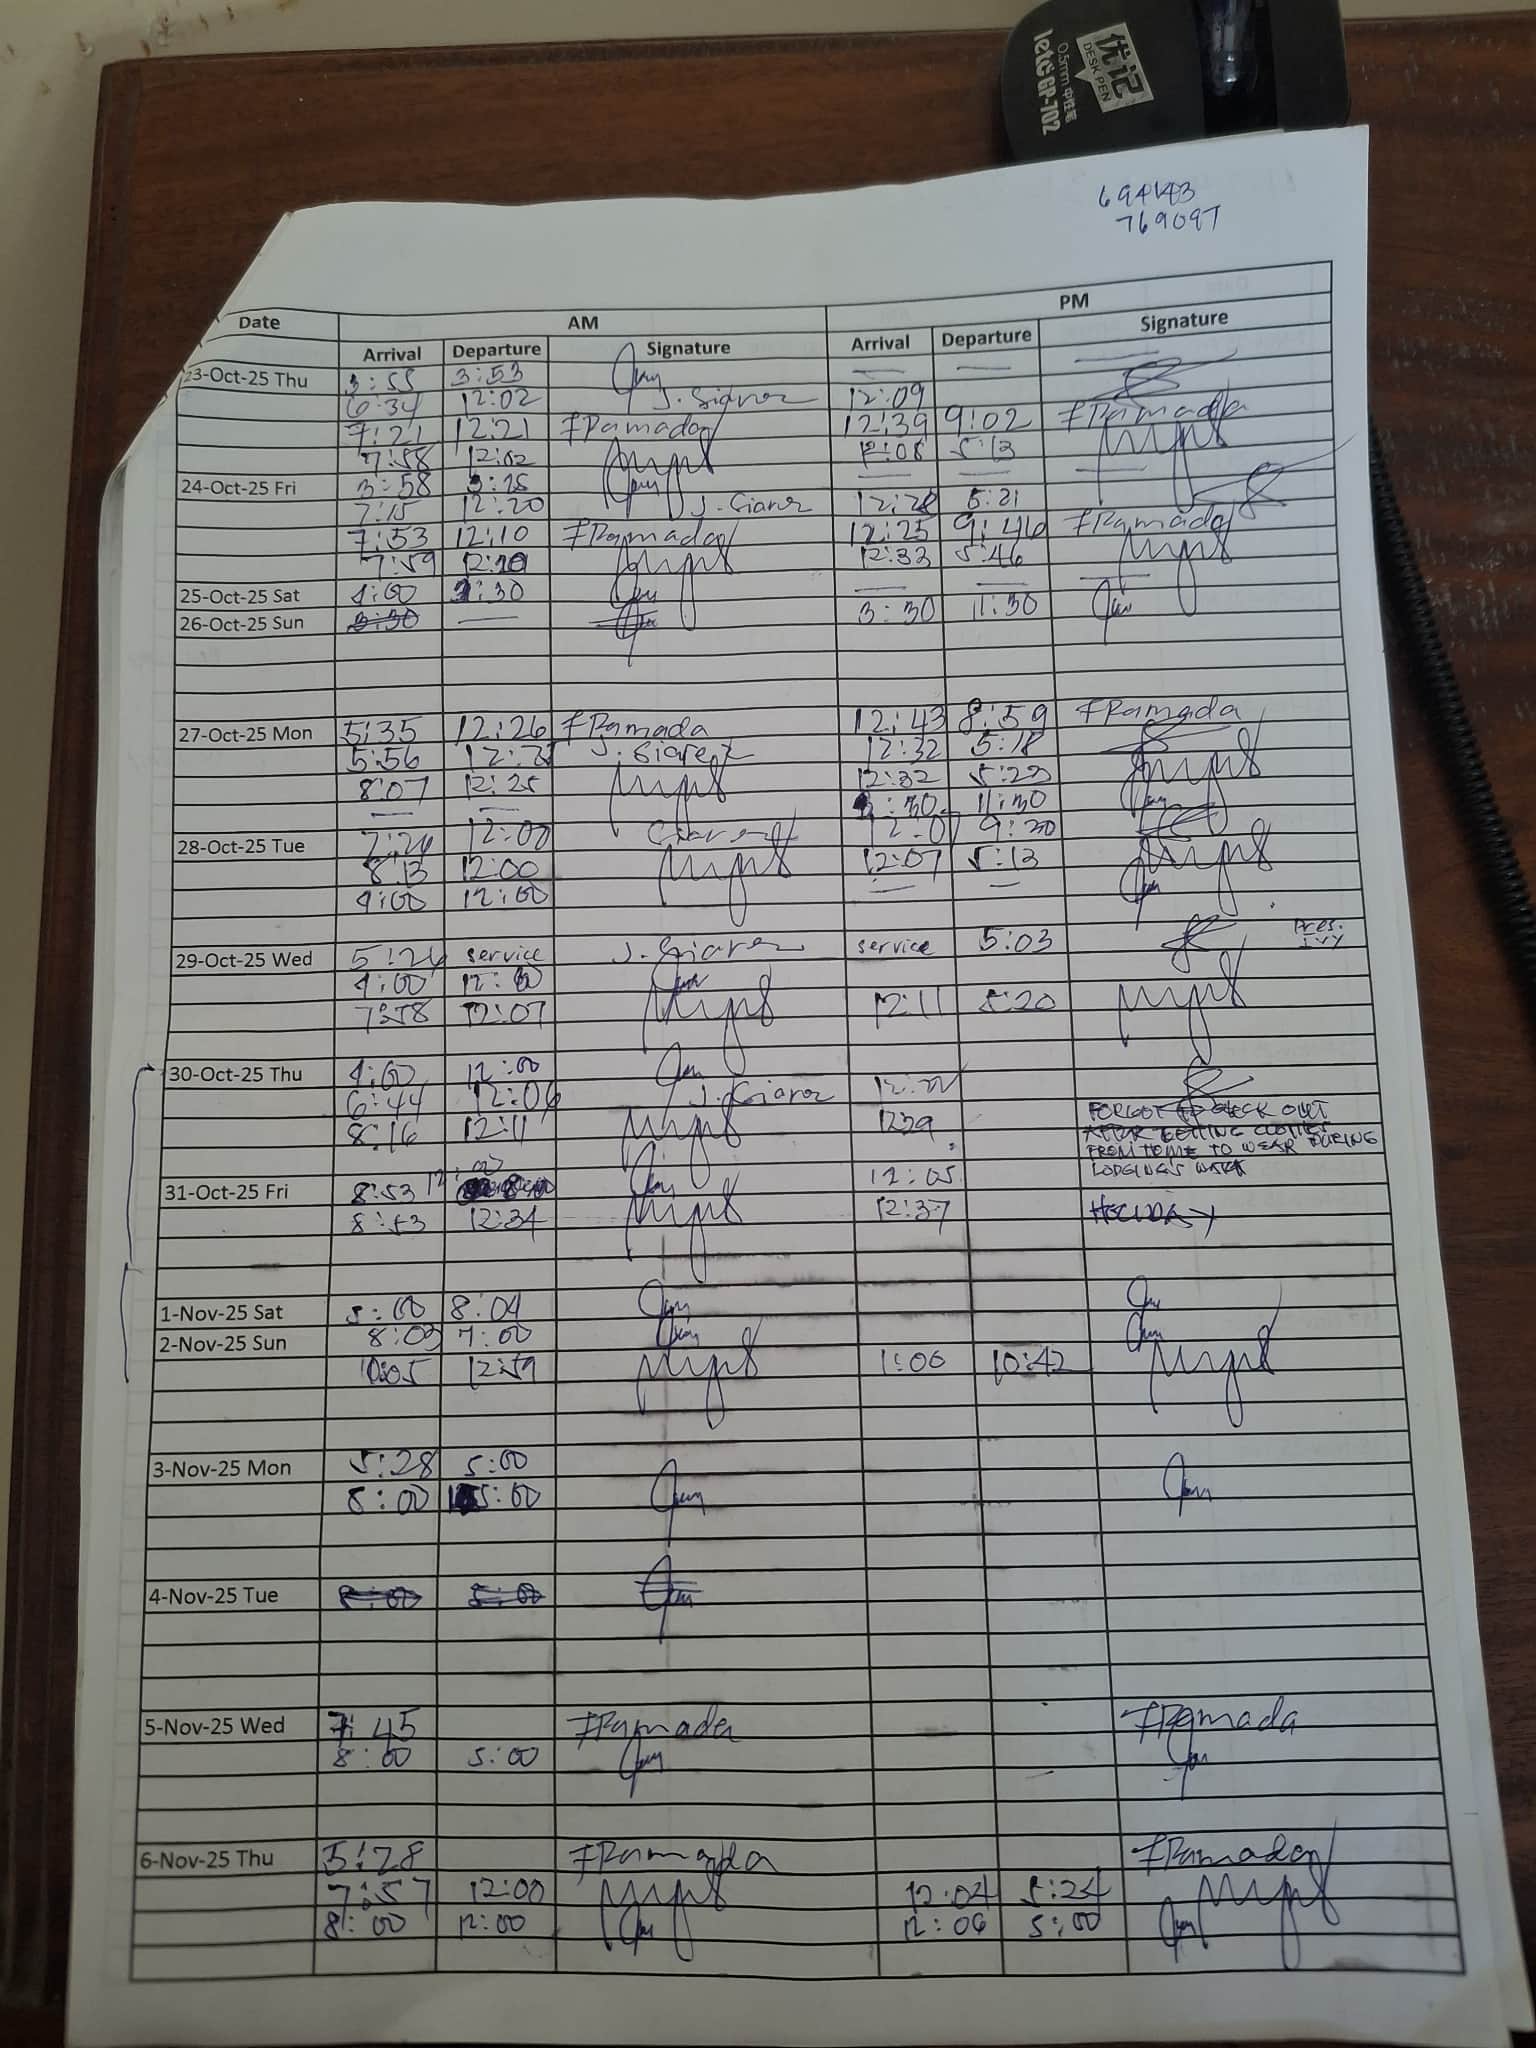 优记
DESK PEN
0.5mm 中性笔
letC GP-702
694143
769097
Date AM PM
Arrival Departure Signature Arrival Departure Signature
23-Oct-25 Thu 3:55 3:53 — —
6:34 12:02 J. Siarez 12:09
7:21 12:21 FRamada 12:39 9:02 FRamada
7:58 12:02 12:08 5:13
24-Oct-25 Fri 3:58 — —
7:15 12:20 J. Siarez 12:28 5:21
7:53 12:10 FRamada 12:25 9:46 FRamada
7:59 12:33 5:46
25-Oct-25 Sat 4:00 3:30 — —
26-Oct-25 Sun 3:30 — 3:30 11:30
27-Oct-25 Mon 5:35 12:26 FRamada 12:43 8:59 FRamada
5:56 J. Siarez 12:32 5:18
8:07 12:25 12:32 5:23
— — 3:30 11:30
28-Oct-25 Tue 12:00 9:30
8:13 12:00 12:07 5:13
4:00 12:00 — —
29-Oct-25 Wed 5:24 service J. Siarez service 5:03 Pres. Ivy
4:00 12:00
7:58 12:07 12:11 5:20
30-Oct-25 Thu 4:00 12:00
6:44 12:06 J. Siarez
8:16 12:11 12:29 FORGOT TO CHECK OUT
AFTER GETTING CLOTHES
FROM HOME TO WEAR DURING
LODGINGS WORK
31-Oct-25 Fri 8:53 12:00 12:05
8:53 12:34 12:37 HOLIDAY
1-Nov-25 Sat 5:00 8:04
2-Nov-25 Sun 8:03 7:00
10:05 12:59 1:06 10:42
3-Nov-25 Mon 5:28 5:00
8:00 5:00
4-Nov-25 Tue 8:00 5:00
5-Nov-25 Wed 7:45 FRamada FRamada
8:00 5:00
6-Nov-25 Thu 5:28 FRamada FRamada
7:57 12:00 12:04 5:24
8:00 12:00 12:06 5:00